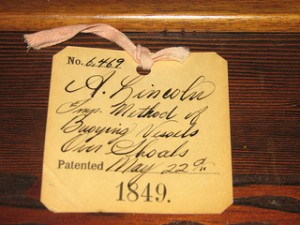 No. 6,469.
A. Lincoln
Imp. Method of
Buoying Vessels
Over Shoals
Patented May 22d
1849.